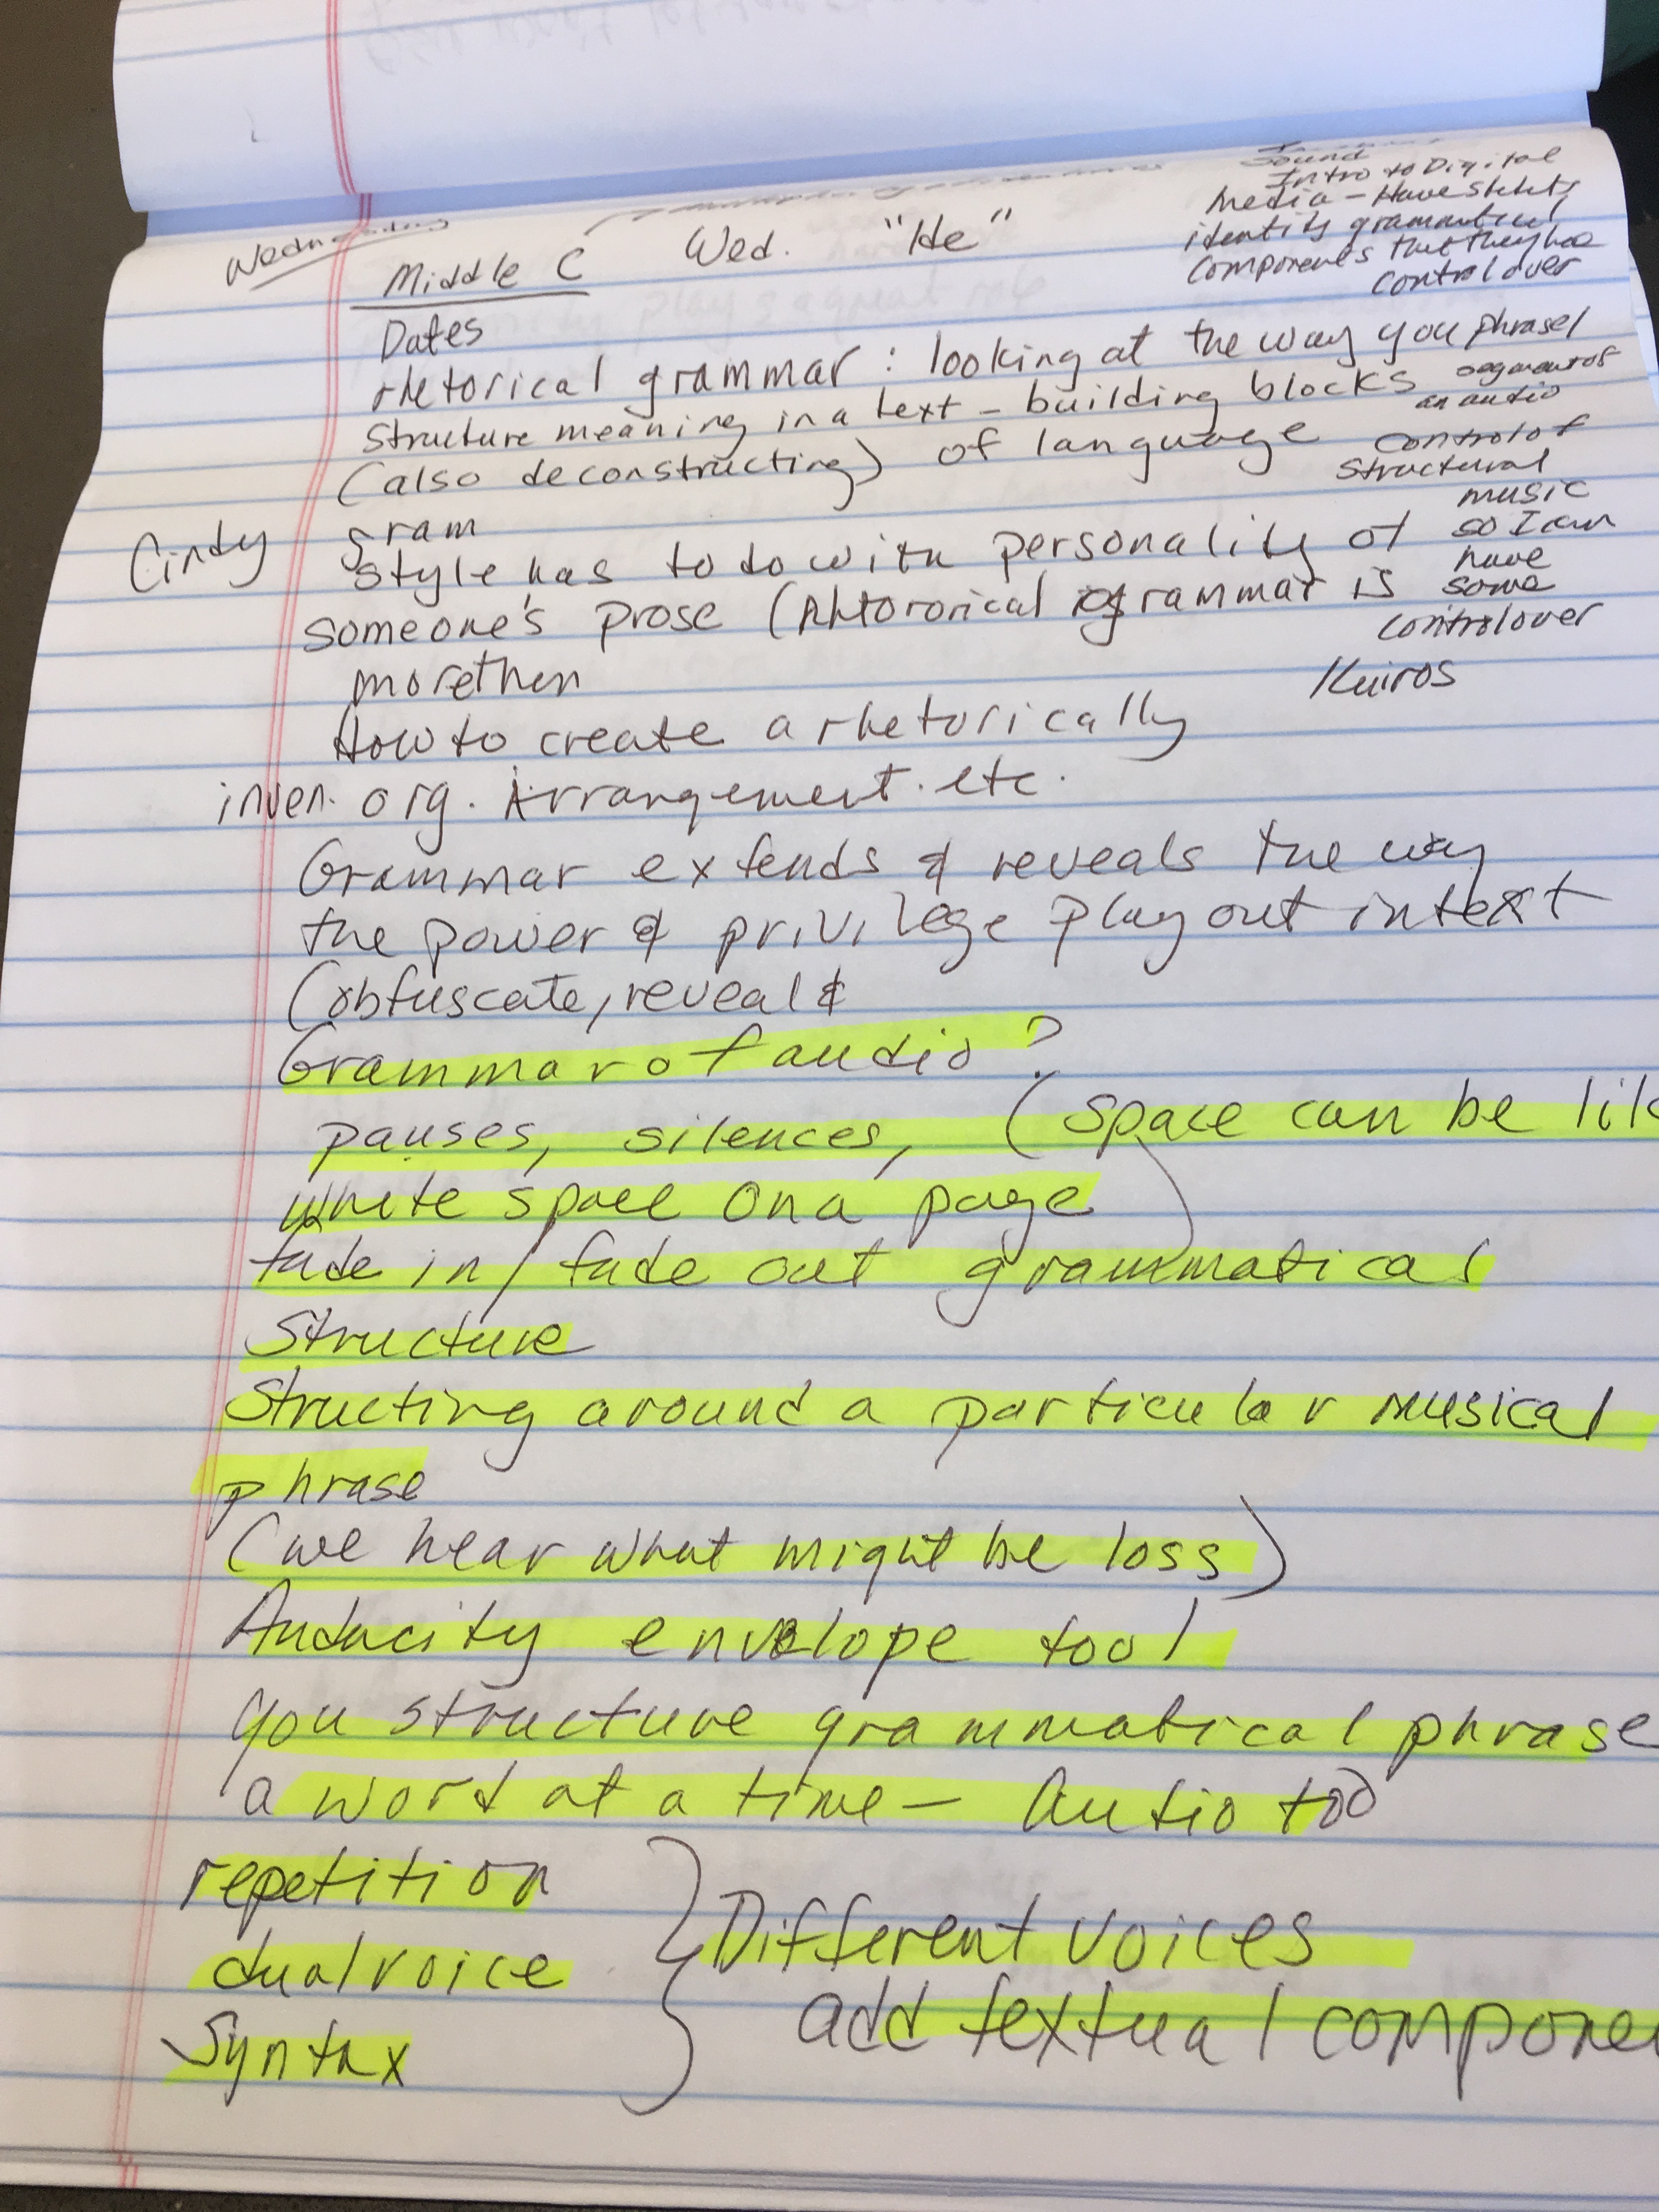 Sound
Intro to Digital
Media - Have
identify grammatical
components that they
control over
Wednesday
Middle C Wed. "He"
Dates
rhetorical grammar : looking at the way you phrase/
structure meaning in a text - building blocks
(also deconstructing) of language
segments of
an audio
control of
structural
music
so I can
have
some
control over
Kairos
Cindy gram
style has to do with personality of
someone's prose (rhtororical grammar is
morethen
How to create a rhetorically
inven. org. Arrangement. etc.
Grammar extends & reveals the way
the power & privilege play out in text
(obfuscate, reveal &
Grammar of audio?
pauses, silences, (space can be lik
white space on a page
fade in / fade out grammatical
Structure
Structing around a particular musical
phrase
(we hear what might be loss)
Audacity envelope tool
you structure grammatical phrase
a word at a time - Audio too
repetition
dual voice
Syntax
Different voices
add textual compone